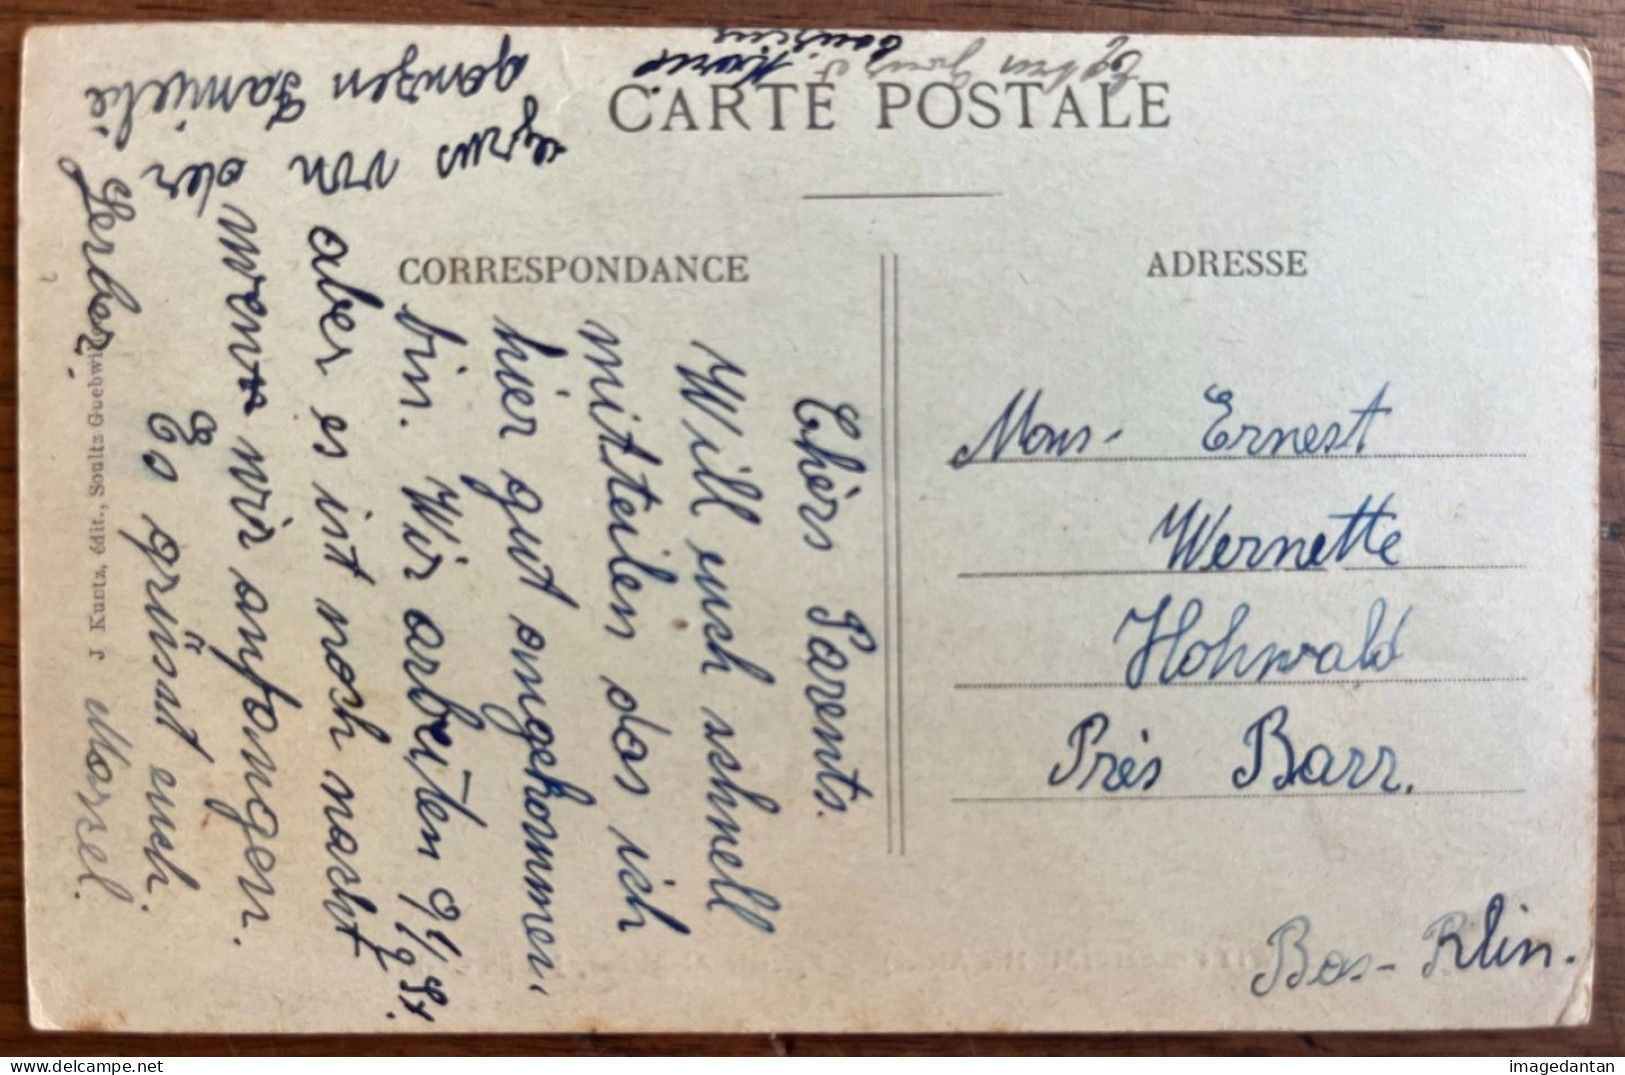 CARTE POSTALE
CORRESPONDANCE
ADRESSE
Chèrs Parents.
Will euch schnell
mitteilen das ich
hier gut angekommen
bin. Wir arbeiten 9½ St.
aber es ist noch nicht
wenn wir anfangen.
Es grüsst euch.
Marcel.
Grus von der
ganzen Familie
Gerber.
Mons. Ernest
Wernette
Hohwald
Près Barr.
Bas-Rhin.
J Kuntz, édit., Soultz Guebwi
imagedantan